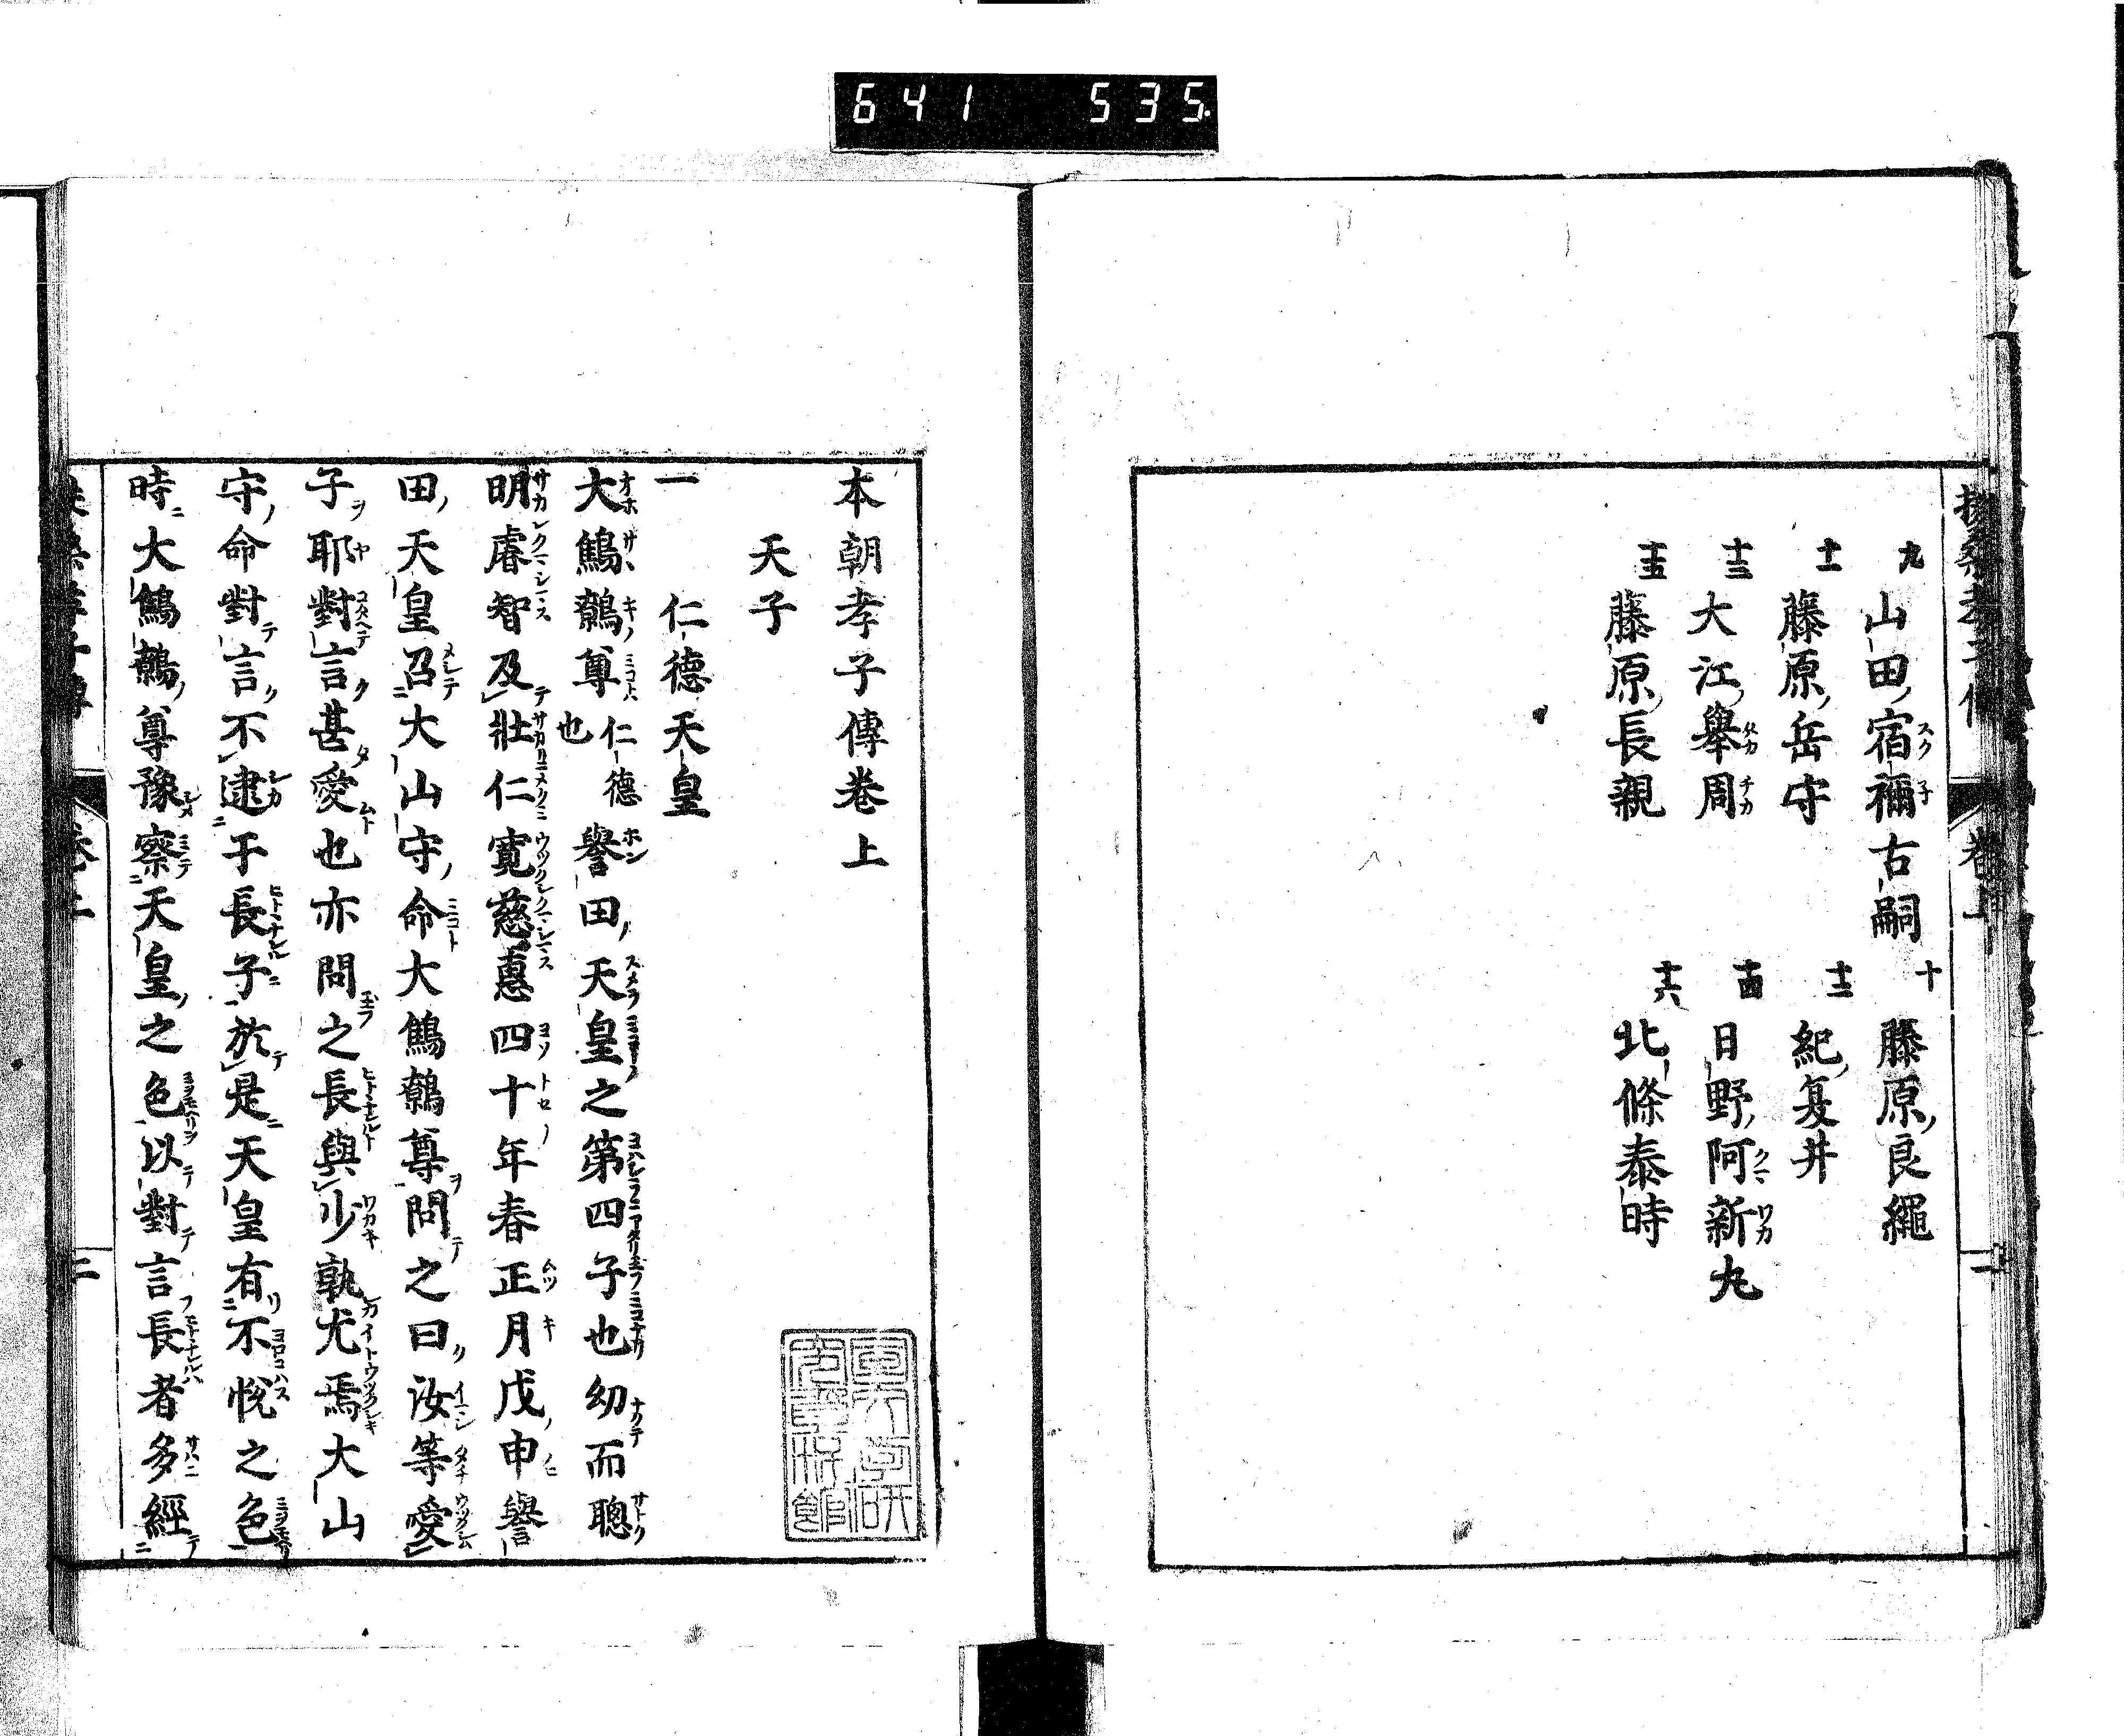 641 535
九 山田宿禰古嗣 十 藤原良繩
十一 藤原岳守 十二 紀夏井
十三 大江舉周 十四 日野阿新丸
十五 藤原長親 十六 北條泰時
本朝孝子傳卷上
天子
一 仁德天皇
大鷦鷯尊仁德也譽田天皇之第四子也幼而聰
明睿智及壯仁寬慈惠四十年春正月戊申譽
田天皇召大山守命大鷦鷯尊問之曰汝等愛
子耶對言甚愛也亦問之長與少孰尤焉大山
守命對言不逮于長子於是天皇有不悅之色
時大鷦鷯尊豫察天皇之色以對言長者多經